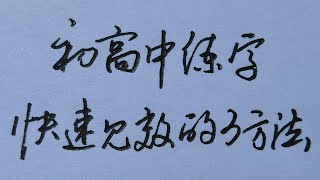 初高中练字
快速见效的3方法